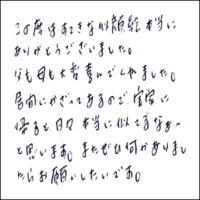 この度はすてきな似顔絵本当に
ありがとうございました。
父も母も大喜びでくれました。
居間にかざってあるので、実家に
帰ると、日々本当に似てるなぁ〜
と思います。またぜひ何かありまし
たらお願いしたいです。